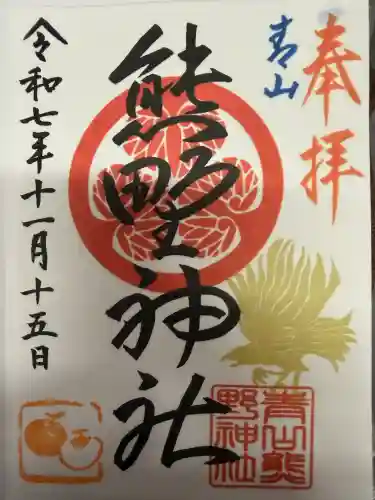 奉拝
青山
熊野神社
令和七年十一月十五日
青山熊
野神社